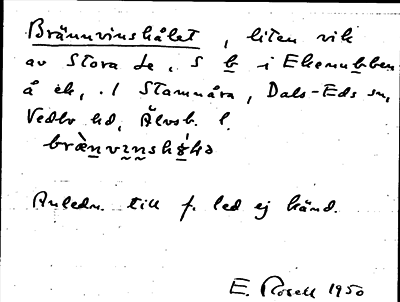 Brännvinshålet, liten vik
av Stora Le, S b i Ekenubben
å ek, . / Stamnåra, Dals-Eds sn,
Vedbo hd, Älvsb. l.
bræ̀nvinshȯ́lə
Anledn. till f. led ej känd.
E. Rosell 1950